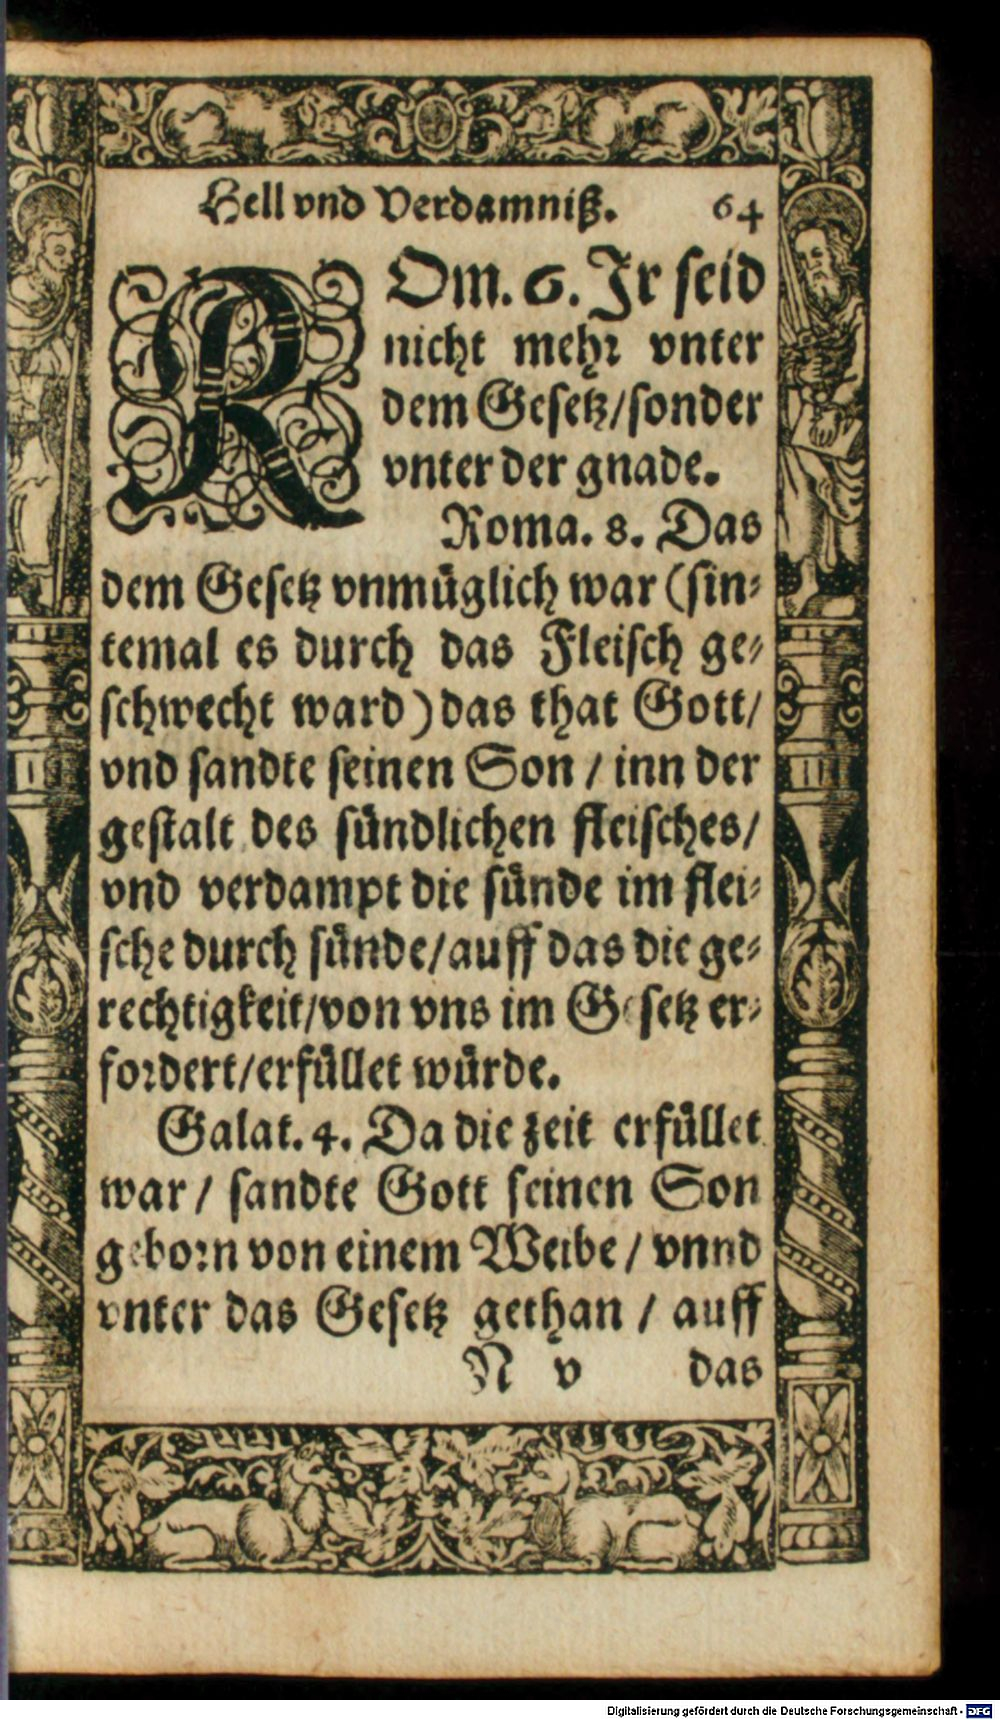 Hell vnd Verdamniß. 64
ROm. 6. Ir seid
nicht mehr vnter
dem Gesetz/sonder
vnter der gnade.
Roma. 8. Das
dem Gesetz vnmüglich war (sin-
temal es durch das Fleisch ge-
schwecht ward) das that Gott/
vnd sandte seinen Son / inn der
gestalt des sündlichen fleisches/
vnd verdampt die sünde im flei-
sche durch sünde/auff das die ge-
rechtigkeit/von vns im Gesetz er-
fordert/erfüllet würde.
Galat. 4. Da die zeit erfüllet
war / sandte Gott seinen Son
geborn von einem Weibe / vnnd
vnter das Gesetz gethan / auff
N v das
Digitalisierung gefördert durch die Deutsche Forschungsgemeinschaft - DFG